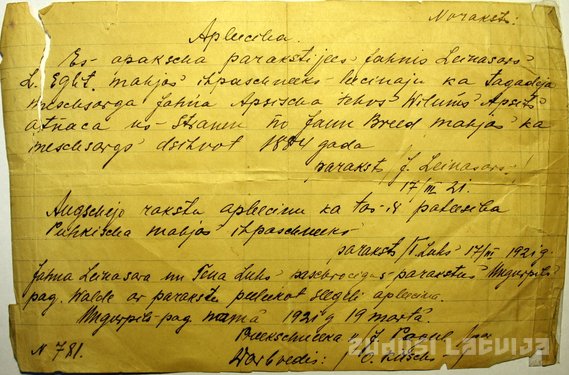 Noraksts:
Aplieciba.
Es apakscha parakstijees Jahnis Leinasars
L. Eglit mahjas ihpaschneeks leezinaju ka tagadeja
meschsarga Jahna Apsischa tehvs Wilums Apsit
atnaca us Straum un Jaun Breed mahjas ka
meschsargs dsihwot 1884 gada
paraksts J. Leinasars
17/III 21.
Augschejo rakstu apleezinu ka tas ir pateesiba
Puhkischa mahjas ihpaschneeks
paraksts Luhs 17/III 1921 g.
Jahna Leinasara un Luhs paschrocigus parakstus Ungurpils
pag. Walde ar parakstu peeleekot seegeli apleecina.
Ungurpils pag. namā 1921 g 19 martā.
Preekschneeks
Darbvedis:
N 781.
ZUDUSI LATVIJA